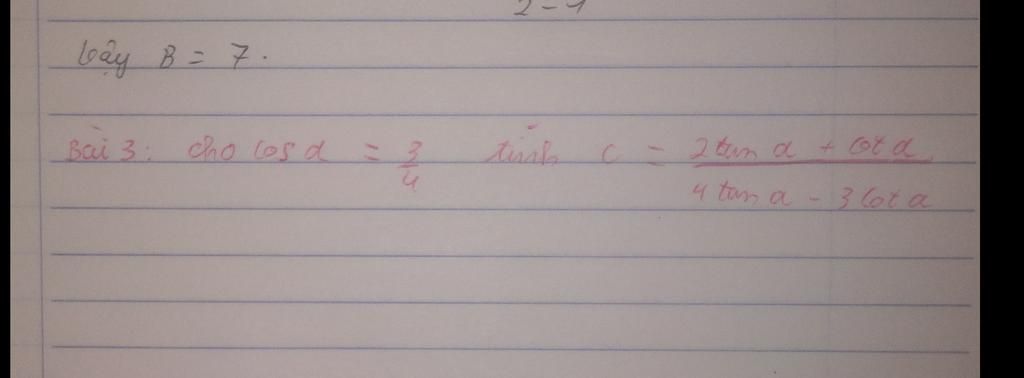 2-1
Vậy B = 7.
Bài 3: cho cos α = 3/4 tính C = (2tan α + cot α)/(4tan α - 3cot α)